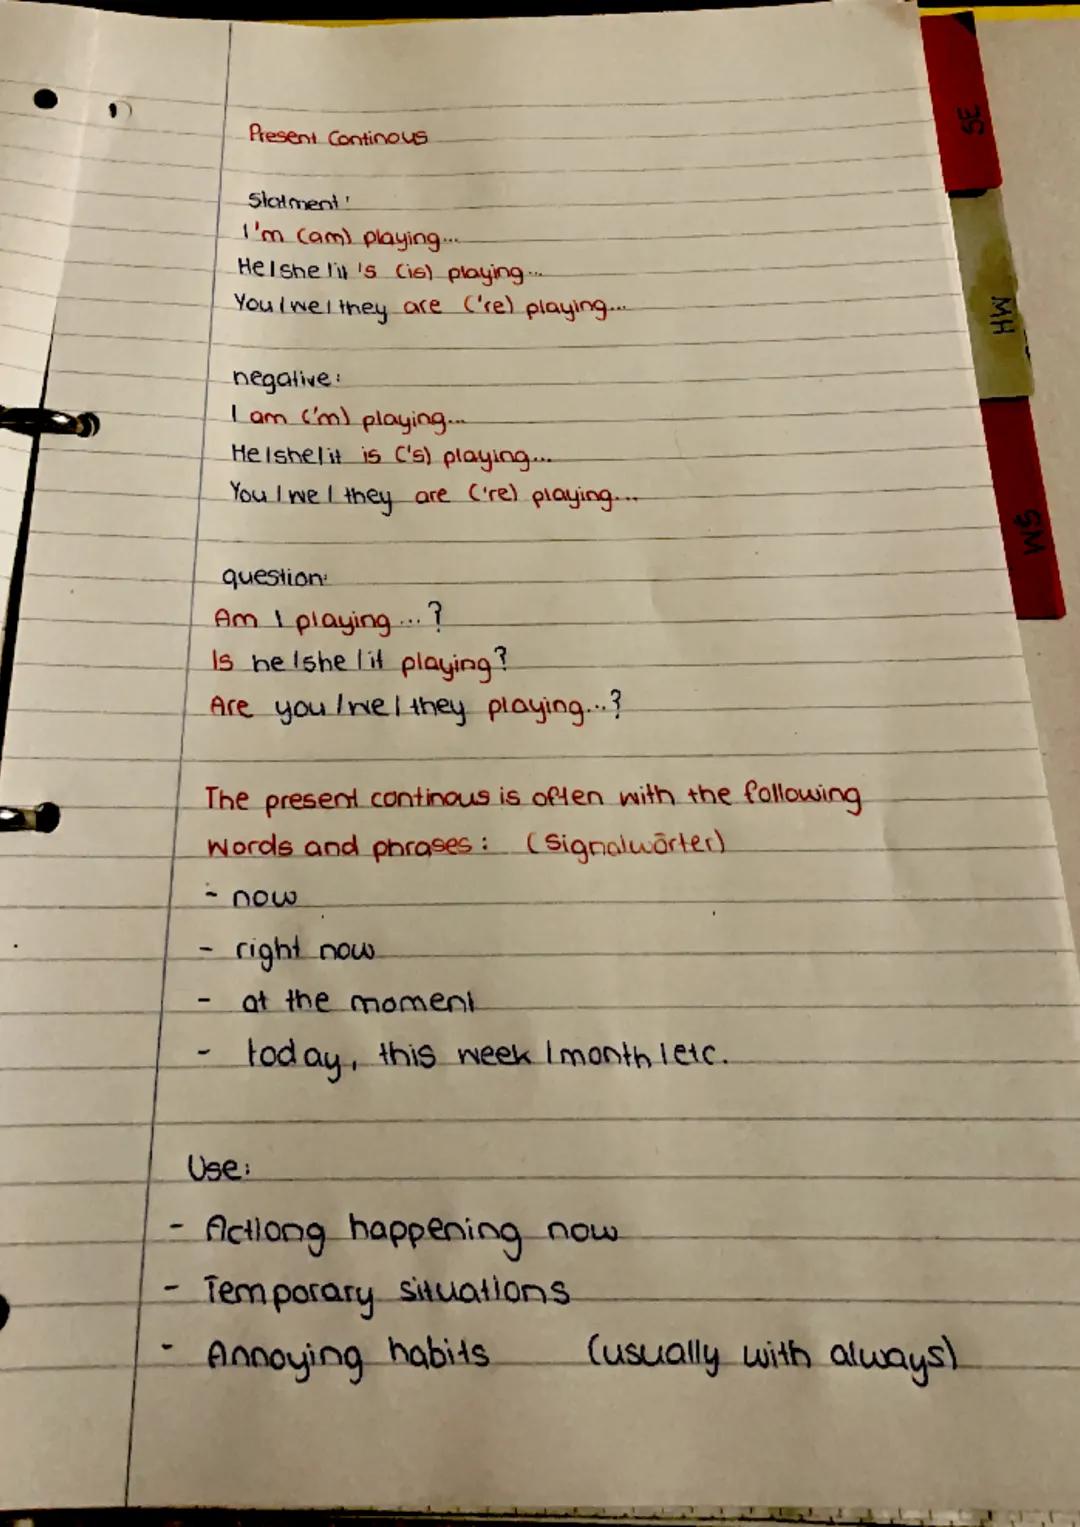 1)
Present Continous
Statment:
I'm (am) playing...
He/she/it 's (is) playing...
You/we/they are ('re) playing...
negative:
I am ('m) playing...
He/she/it is ('s) playing...
You/we/they are ('re) playing...
question:
Am I playing...?
Is he/she/it playing?
Are you/we/they playing...?
The present continous is often with the following
words and phrases: (Signalwörter)
- now
- right now
- at the moment
- today, this week/month/etc.
Use:
- Actiong happening now
- Temporary situations
- Annoying habits (usually with always)
SE
MH
SM